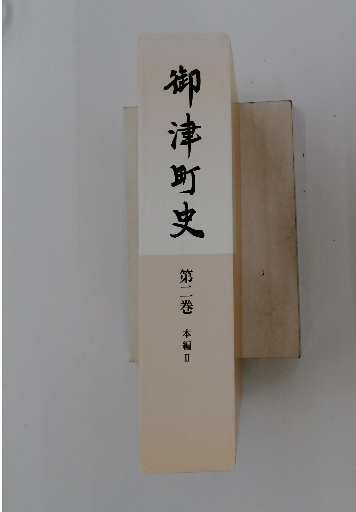 御津町史
第二巻 本編Ⅱ